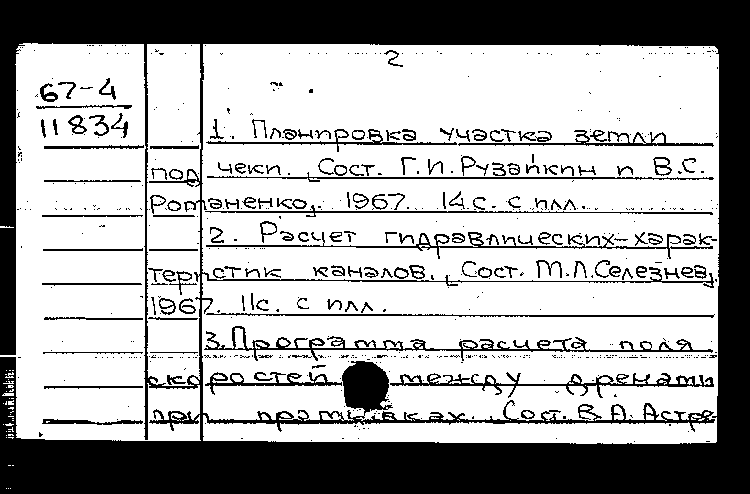 2
67-4
11834
1. Планировка участка земли
под чеки. [Сост. Г.И. Рузайкин и В.С.
Романенко]. 1967. 14 с. с илл.
2. Расчет гидравлических харак-
теристик каналов. [Сост. М.Л. Селезнев].
1967. 11 с. с илл.
3. Программа расчета поля
скоростей между дренами
при промывках. Сост. В.А. Астре-